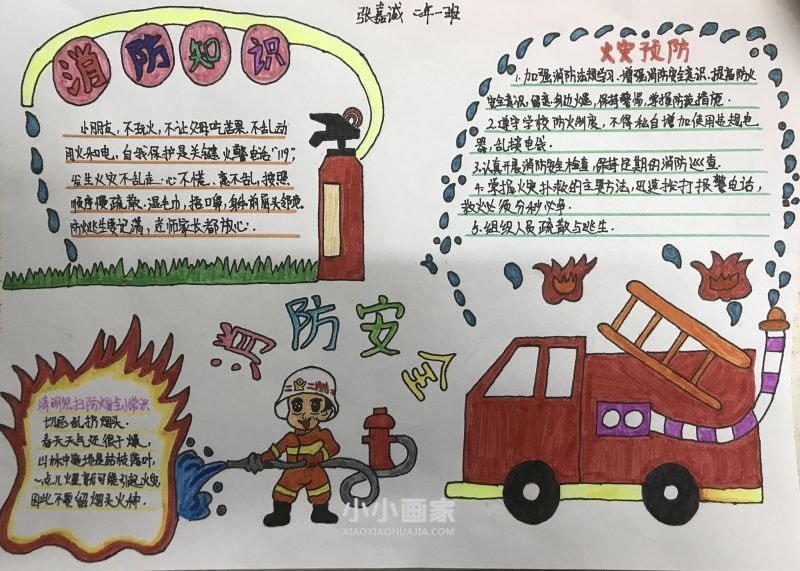 张嘉诚 二年一班
消防知识
小朋友,不玩火,不让父母吃苦果.不乱动
用火和电,自我保护是关键.火警电话"119",
发生火灾不乱走.心不慌,意不乱,按照
顺序慢疏散.湿毛巾,捂口鼻,身体前屈头邻地
防火逃生要记满,老师家长都放心.
火灾预防
1.加强消防法规学习.增强消防安全意识,提高防火
安全意识,留意身边火患,保持警惕,掌握防范措施.
2.遵守学校防火制度,不得私自增加使用违规电
器,乱接电线.
3.认真开展消防安全检查,保持定期的消防巡查.
4.掌握火灾扑救的主要方法,迅速拨打报警电话,
救火必须分秒必争.
5.组织人员疏散与逃生.
消防安全
清明祭扫防火安全小常识
切忌乱扔烟头.
春天天气还很干燥,
山林中遍地是枯枝落叶.
一点儿火星就可能引起火灾,
因此不要留烟头火种.
消防
小小画家
XIAOXIAOHUAJIA.COM